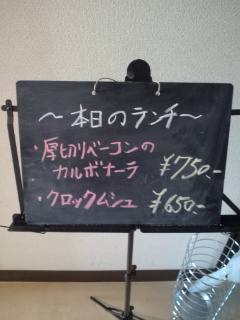 ～本日のランチ～
・厚切りベーコンの
カルボナーラ ¥750-
・クロックムシュ ¥650-